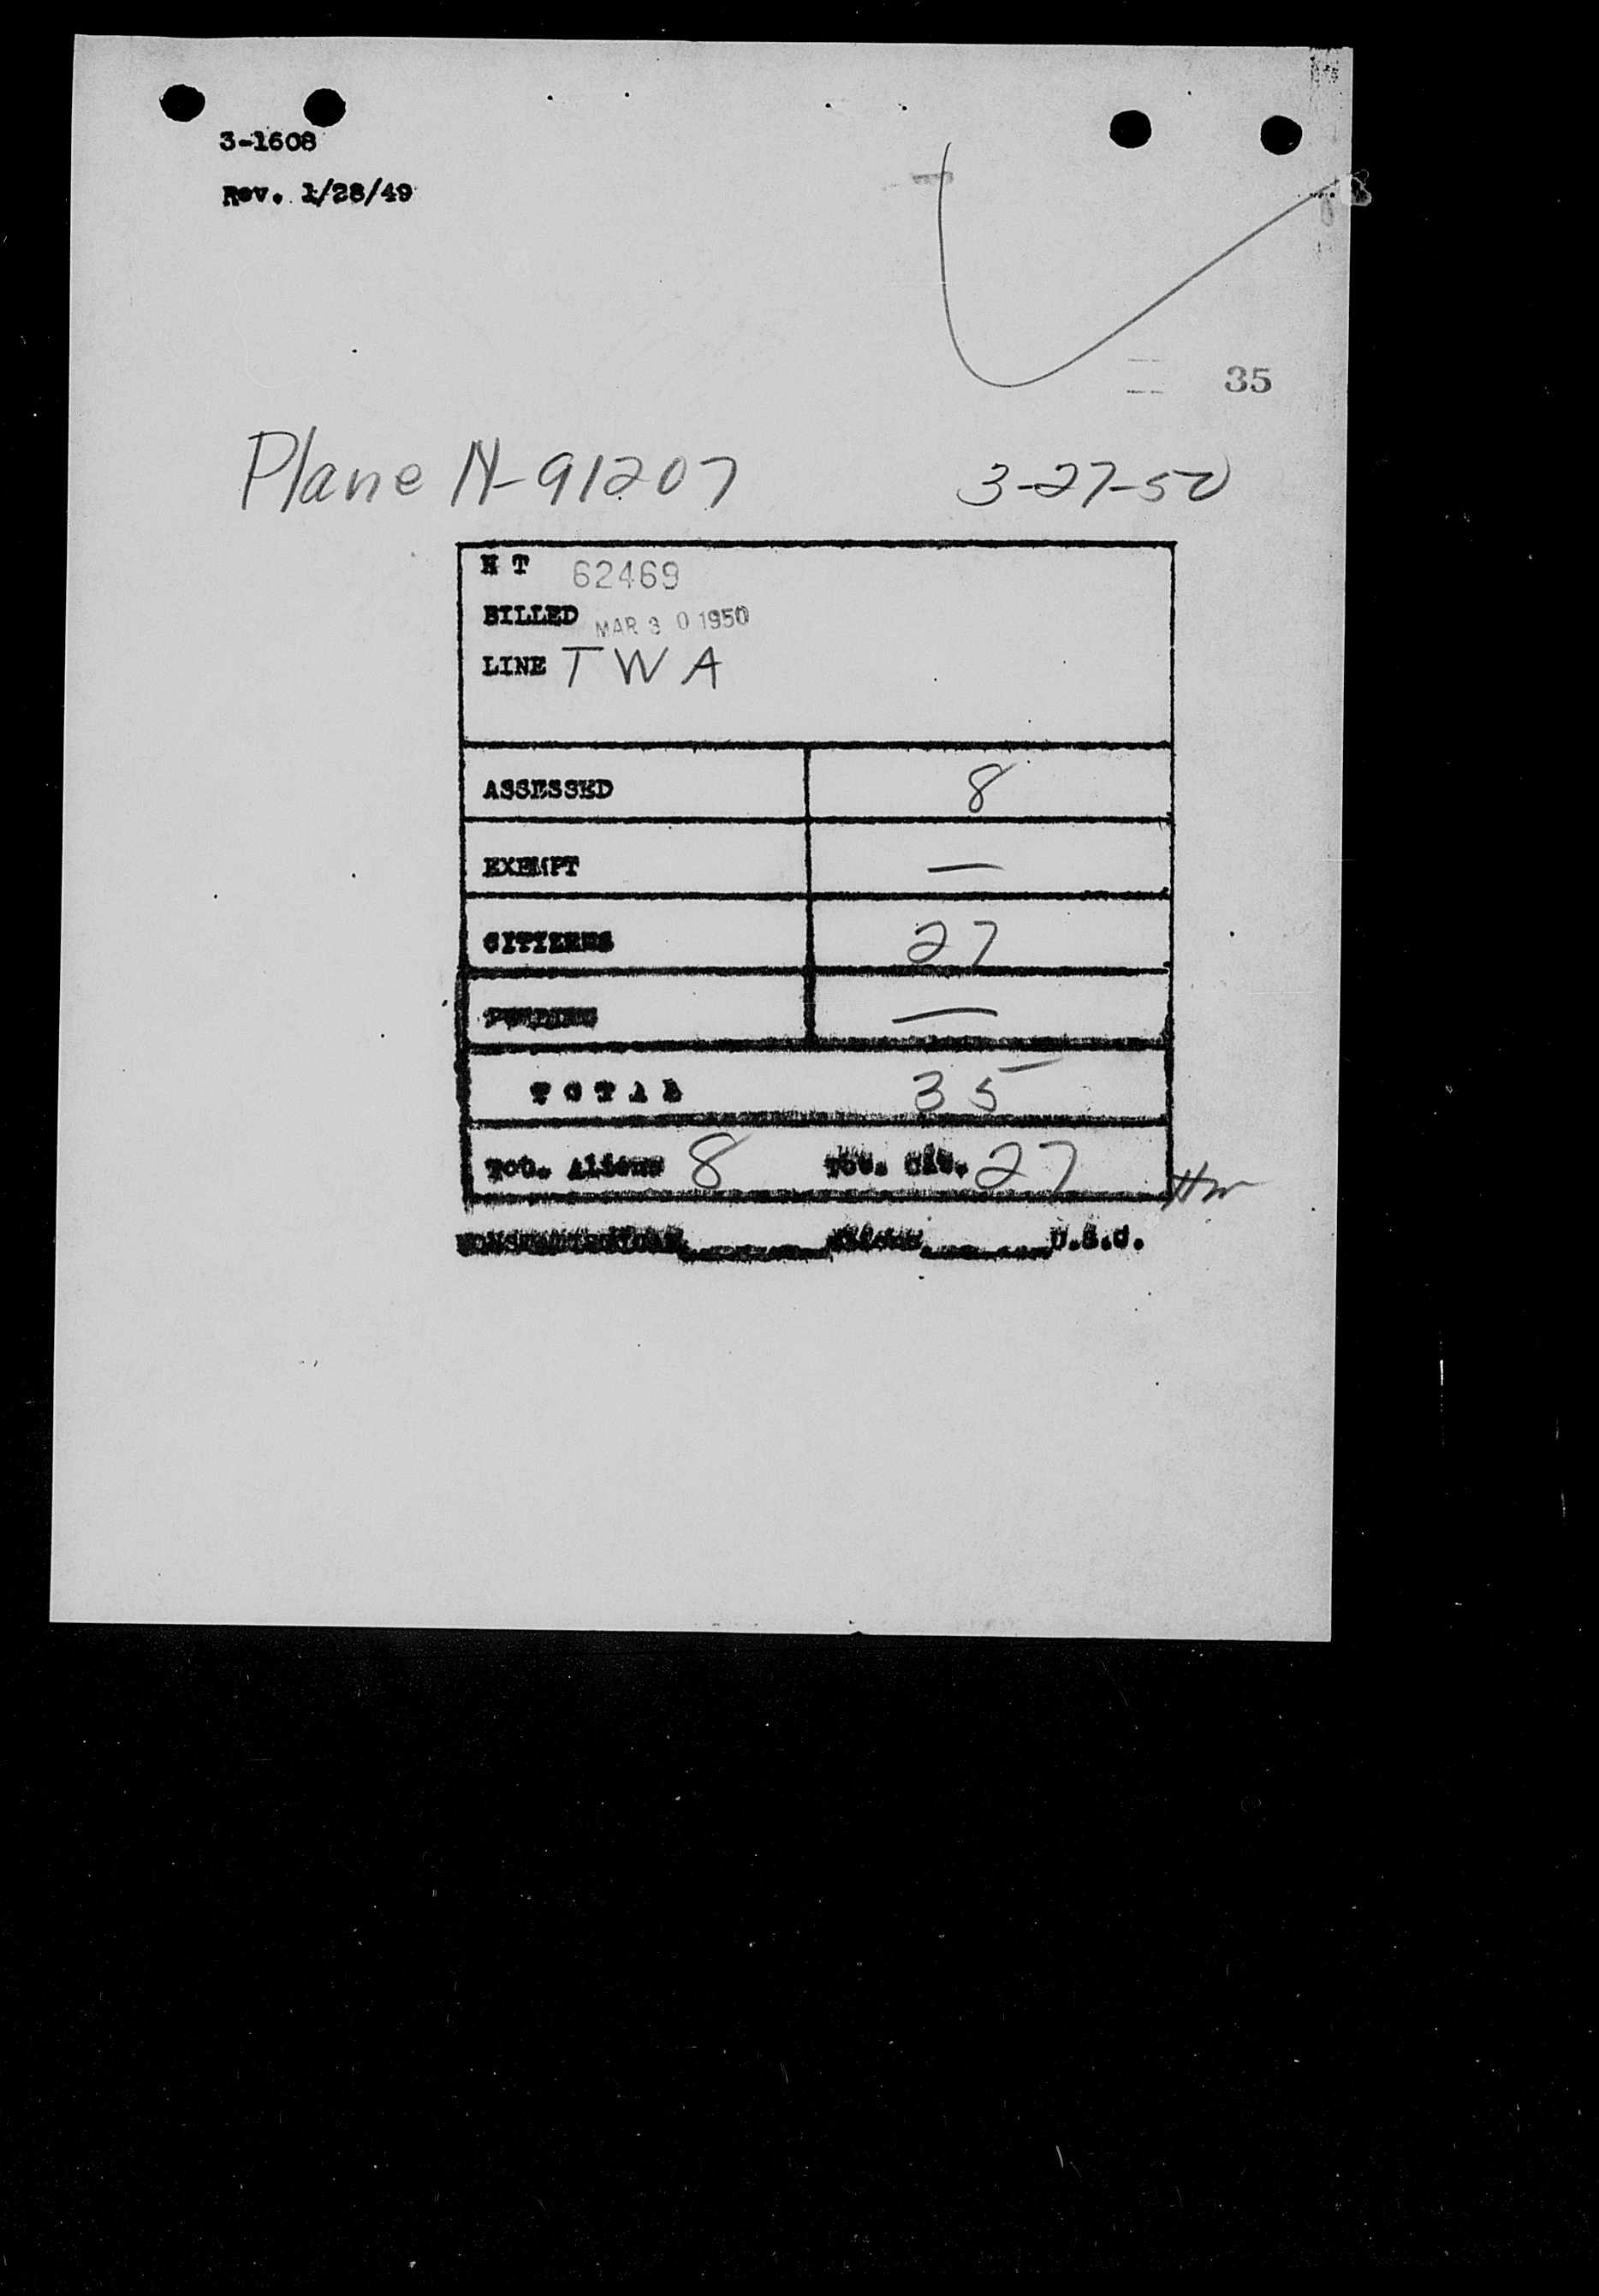 3-1608
Rev. 1/28/49
35
Plane N-91207 3-27-50
H T 62469
BILLED MAR 30 1950
LINE T W A
ASSESSED 8
EXEMPT —
CITIZENS 27
PENDING —
T O T A L 35
Tot. Aliens 8 Tot. Cit. 27
Aliens U.S.C.